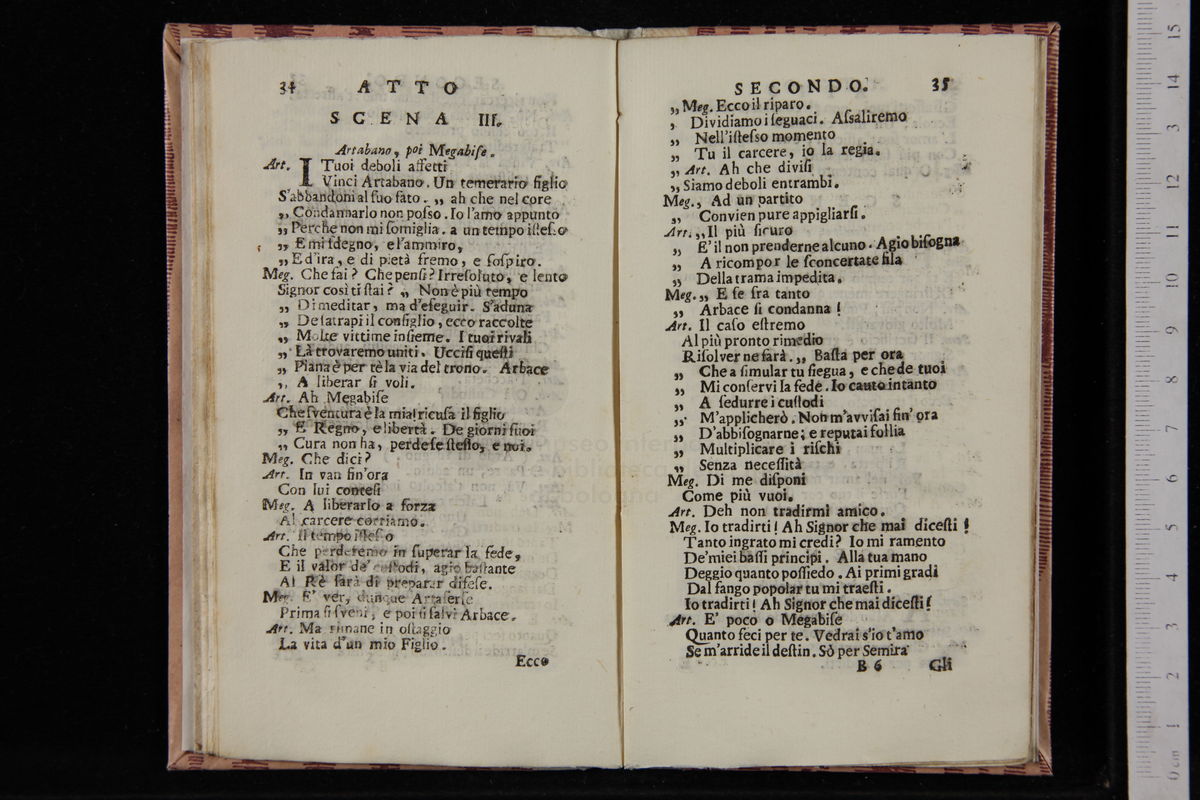 34 ATTO
SCENA III.
Artabano, poi Megabiſe.
Art. I Tuoi deboli affetti
Vinci Artabano. Un temerario figlio
S'abbandoni al ſuo fato. „ ah che nel core
„ Condannarlo non poſso. Io l'amo appunto
„ Perche non mi ſomiglia. a un tempo iſteſſo
„ E mi ſdegno, e l'ammiro,
„ E d'ira, e di pietà fremo, e ſoſpiro.
Meg. Che fai? Che penſi? Irreſoluto, e lento
Signor così ti ſtai? „ Non è più tempo
„ Di meditar, ma d'eſeguir. S'aduna
„ De ſatrapi il conſiglio, ecco raccolte
„ Molte vittime inſieme. I tuoi rivali
„ Là trovaremo uniti. Ucciſi queſti
„ Piana è per tè la via del trono. Arbace
„ A liberar ſi voli.
Art. Ah Megabiſe
Che ſventura è la mia! ricuſa il figlio
„ E Regno, e libertà. De giorni ſuoi
„ Cura non ha, perde ſe ſteſſo, e noi.
Meg. Che dici?
Art. In van ſin'ora
Con lui conteſi
Meg. A liberarlo a forza
Al carcere corriamo.
Art. Il tempo iſteſſo
Che perderemo in ſuperar la fede,
E il valor de' cuſtodi, agio baſtante
Al Rè ſarà di preparar difeſe.
Meg. E' ver, dunque Artaſerſe
Prima ſi ſveni, e poi ſi ſalvi Arbace.
Art. Ma rimane in oſtaggio
La vita d'un mio Figlio.
Ecco
SECONDO. 35
„ Meg. Ecco il riparo.
„ Dividiamo i ſeguaci. Aſsaliremo
„ Nell'iſteſso momento
„ Tu il carcere, io la regia.
„ Art. Ah che diviſi
„ Siamo deboli entrambi.
Meg. „ Ad un partito
„ Convien pure appigliarſi.
Art. „ Il più ſicuro
„ E' il non prenderne alcuno. Agio biſogna
„ A ricompor le ſconcertate fila
„ Della trama impedita.
Meg. „ E ſe fra tanto
„ Arbace ſi condanna!
Art. Il caſo eſtremo
Al più pronto rimedio
Riſolver ne farà. „ Baſta per ora
„ Che a ſimular tu ſiegua, e che de tuoi
„ Mi conſervi la fede. Io cauto intanto
„ A ſedurre i cuſtodi
„ M'applicherò. Non m'avviſai ſin' ora
„ D'abbiſognarne; e reputai follia
„ Multiplicare i riſchi
„ Senza neceſſità
Meg. Di me diſponi
Come più vuoi.
Art. Deh non tradirmi amico.
Meg. Io tradirti! Ah Signor che mai diceſti!
Tanto ingrato mi credi? Io mi ramento
De'miei baſſi principi. Alla tua mano
Deggio quanto poſſiedo. Ai primi gradi
Dal fango popolar tu mi traeſti.
Io tradirti! Ah Signor che mai diceſti!
Art. E' poco o Megabiſe
Quanto feci per te. Vedrai s'io t'amo
Se m'arride il deſtin. Sò per Semira
B 6 Gli